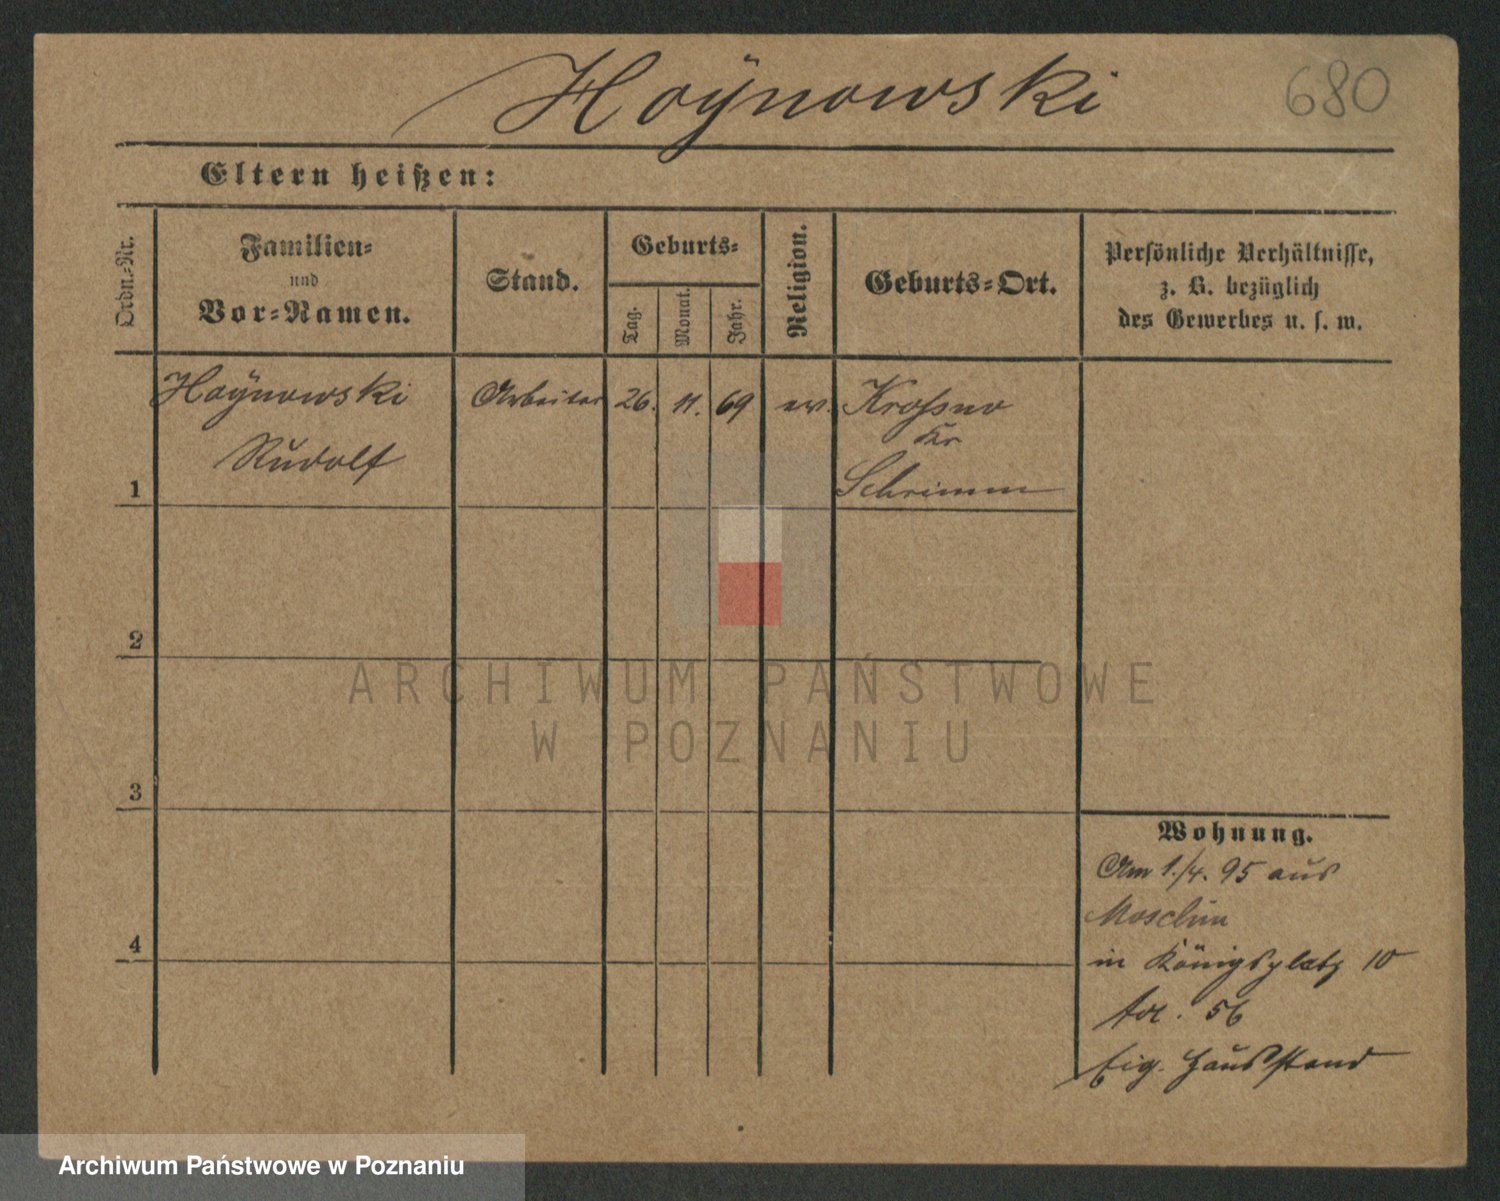 Hoÿnowski
680
Eltern heißen:
Ordn.-Nr.
Familien-
und
Vor-Namen.
Stand.
Geburts-
Tag.
Monat.
Jahr.
Religion.
Geburts-Ort.
Persönliche Verhältnisse,
z. B. bezüglich
des Gewerbes u. s. w.
Hoÿnowski Arbeiter 26. 11. 69 ev. Krossno
Kr
Rudolf
1 Schrimm
2
3
4
Wohnung.
Am 1./4. 95 aus
Moschin
in Königsplatz 10
56
Eig. Hausstand
ARCHIWUM PAŃSTWOWE
W POZNANIU
Archiwum Państwowe w Poznaniu